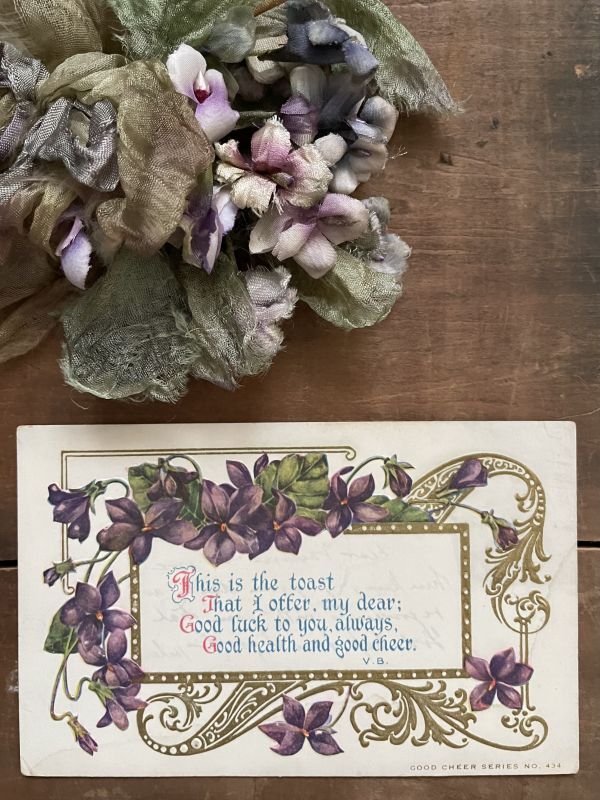 This is the toast
That I offer, my dear;
Good luck to you, always,
Good health and good cheer.
V.B.
GOOD CHEER SERIES NO. 434